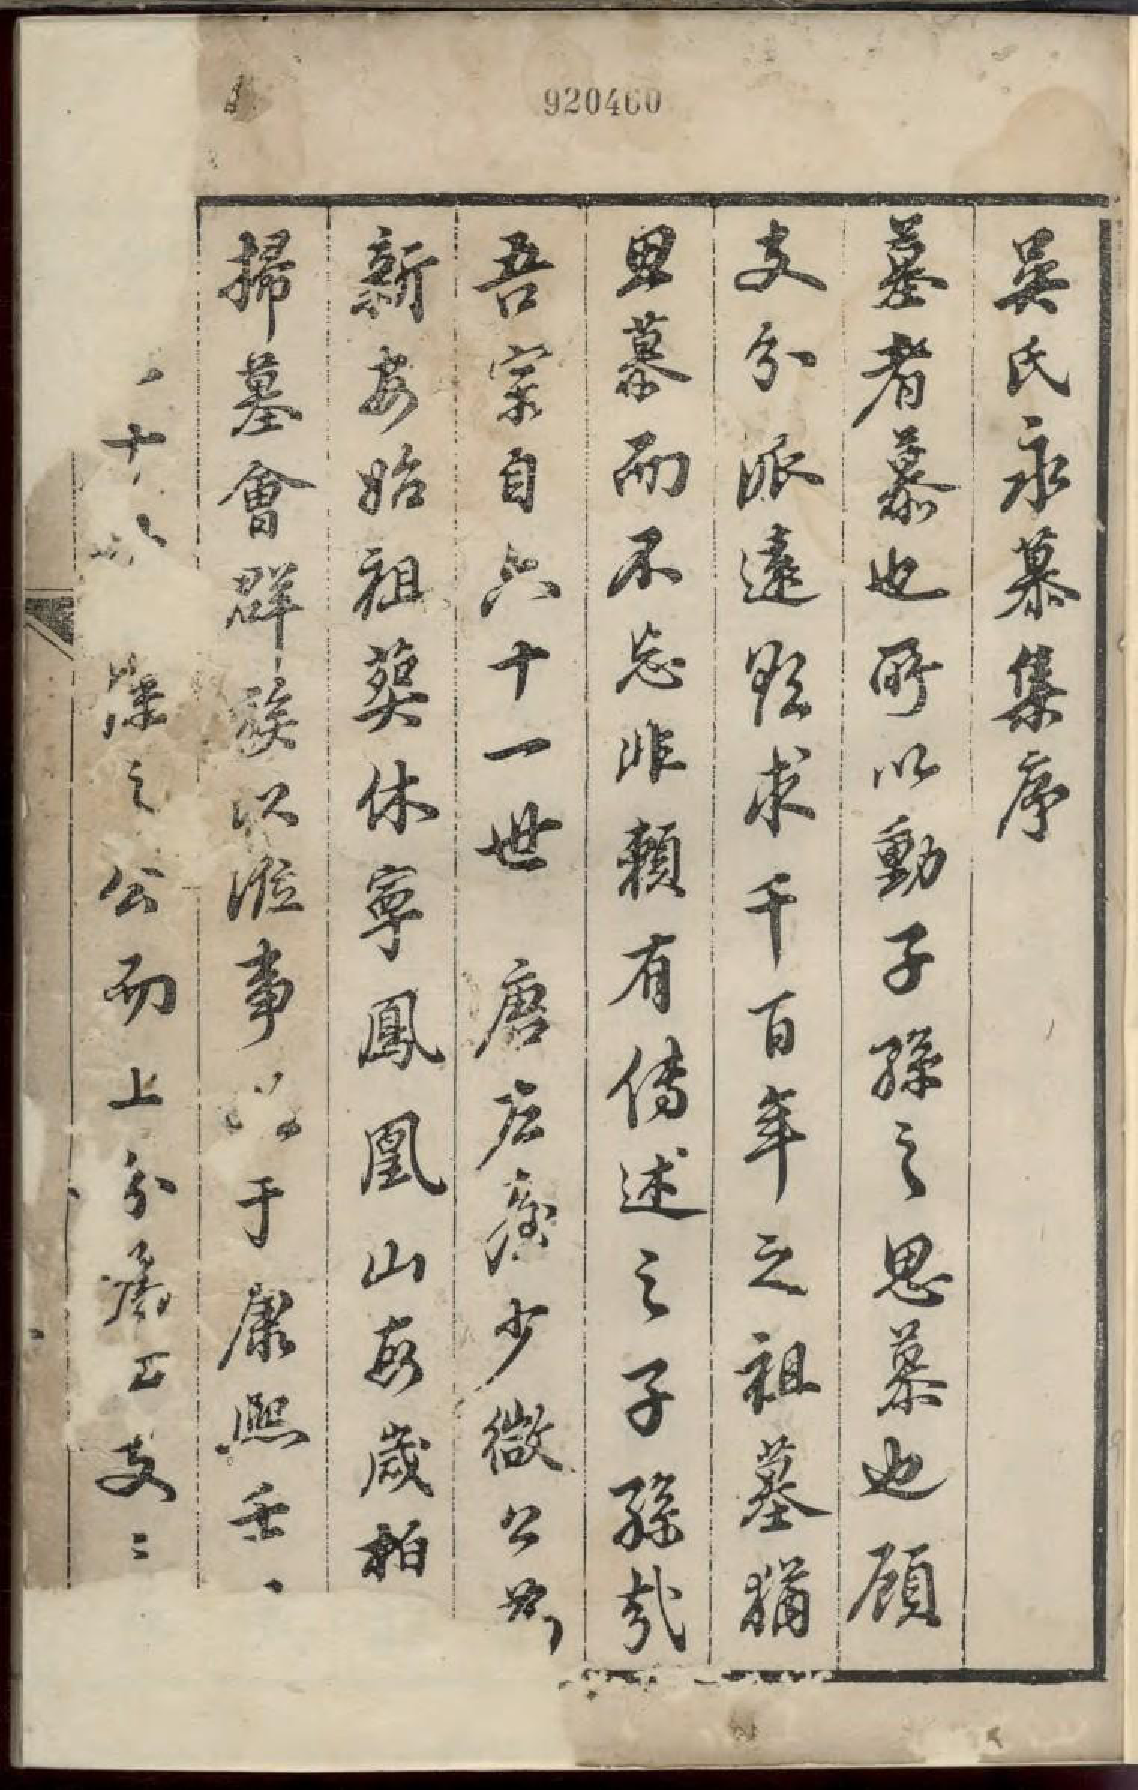 920460
吳氏永慕集序
墓者慕也所以動子孫之思慕也顧
支分派遠欲求千百年之祖墓猶
思慕而不忘非賴有傳述之子孫哉
吾宗自六十一世 唐左臺少微公為
新安始祖葬休寧鳳凰山每歲拍
掃墓會群族以涖事 于康熙壬
十 深之公而上分為五支